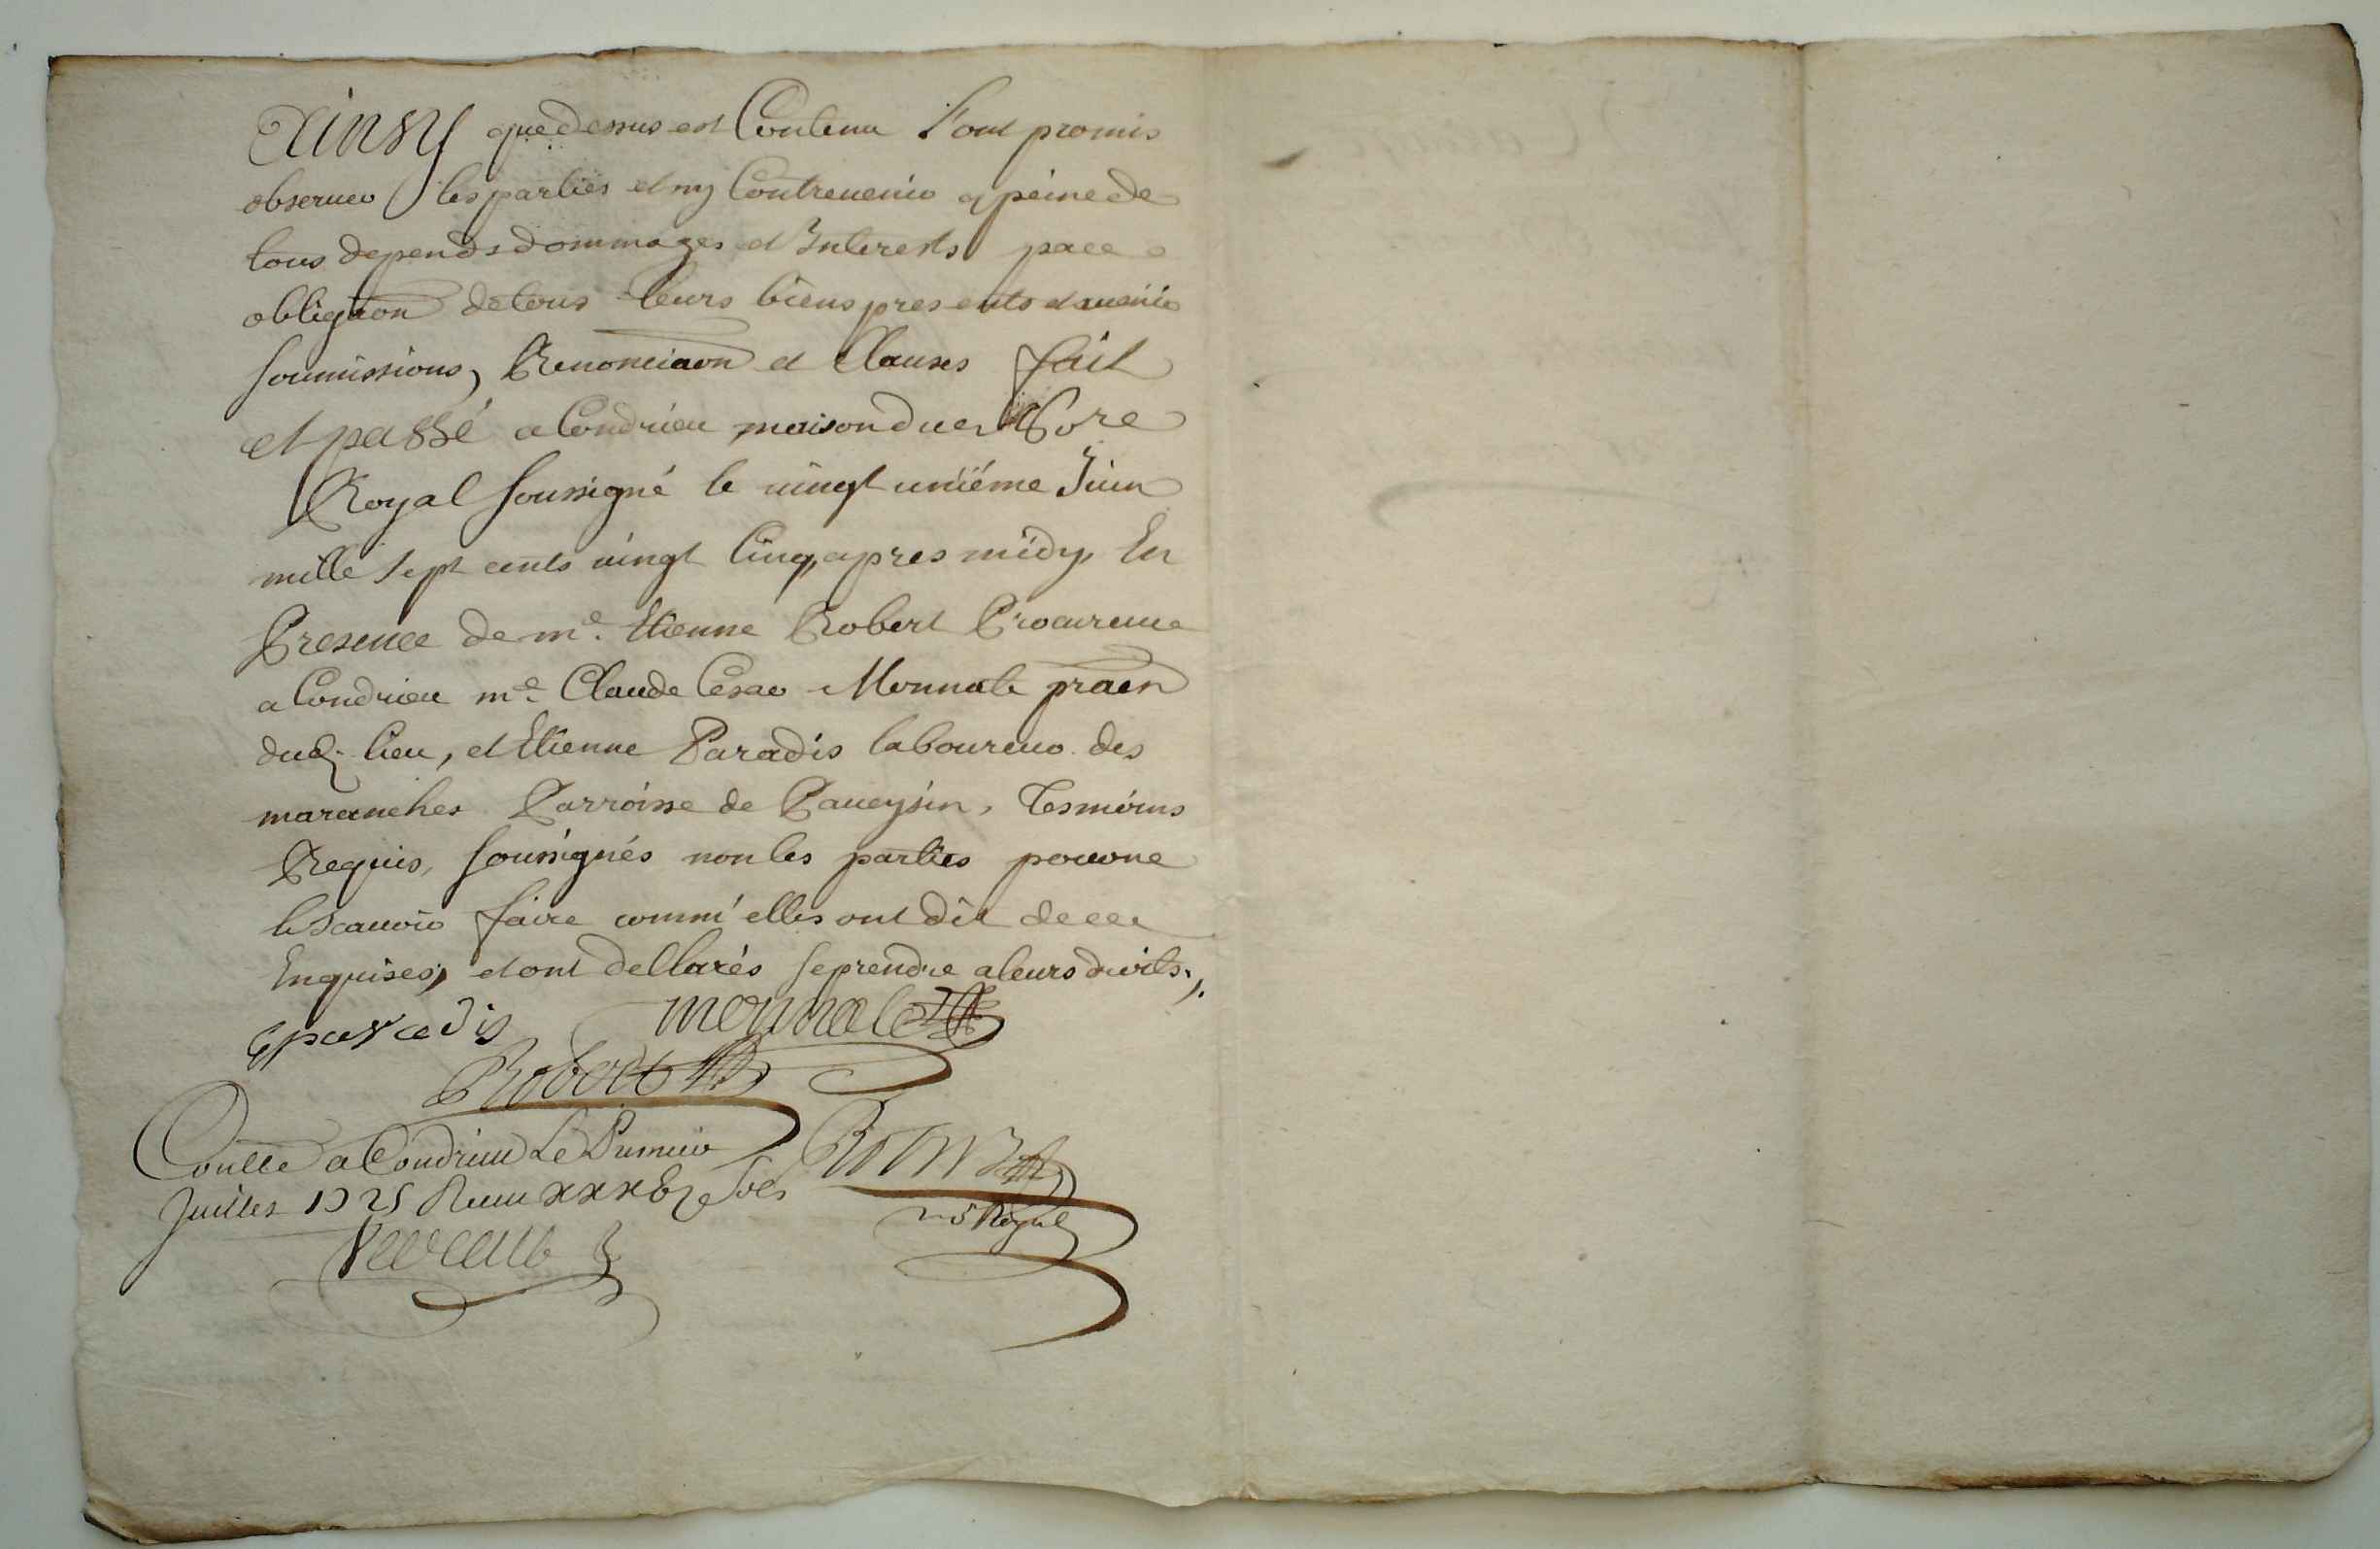 Ainsy que dessus est Contenu l'ont promis
obseruer les parties et ny Contreuenir a peine de
tous depends dommages et Interests par
obligaon de tous leurs biens presents et auenir
soumissions, Renonciaon et Clauses fait
et passé a Condrieu maison du no.re
Royal soussigné le uingt uniéme Juin
mille sept cents uingt Cinq, apres midy, En
Presence de me. Etienne Robert Procureur
a Condrieu me. Claude Cesar Monnate praen
dud. lieu, et Etienne Paradis laboureur des
maranches Parroisse de Paueysin, Tesmoins
Requis, soussignés non les parties pour ne
le scauoir faire comm'elles ont dit de ce
Enquises, et ont dellarés se prendre a leurs droits.
E paradis monnate
Robert
Conllé a Condrieu Le Premier
Juillet 1725 Receu sols
no Royal